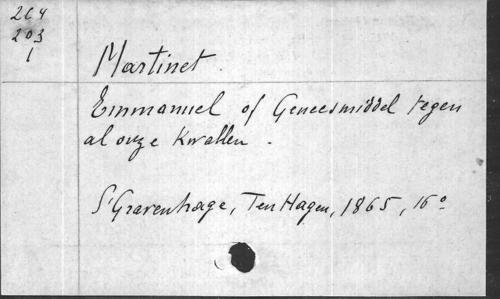 264
203
1
Martinet.
Emmanuel of Geneesmiddel tegen
al onze Kwallen.
S'Gravenhage, Ten Hagen, 1865, 16°